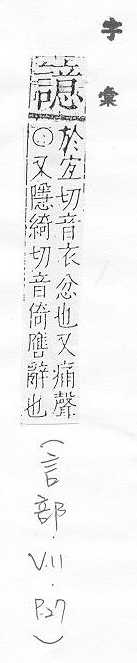 字彙
譩
於宐切音衣忿也又痛聲
○又隱綺切音倚譍辭也
(言部.V.11.P.27)